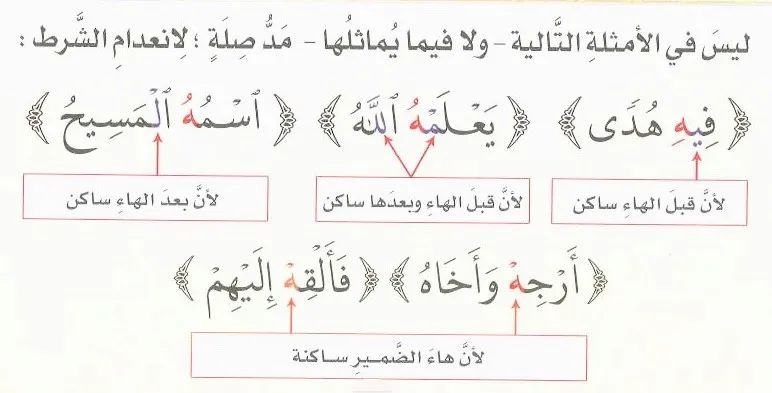 ليسَ في الأمثلةِ التَّالية - ولا فيما يُماثلُها - مَدُّ صِلَةٍ ؛ لِانعدامِ الشَّرط :
﴿ فِيهِ هُدًى ﴾ ﴿ يَعْلَمْهُ ٱللَّهُ ﴾ ﴿ ٱسْمُهُ ٱلْمَسِيحُ ﴾
لأنَّ قبلَ الهاءِ ساكن لأنَّ قبلَ الهاءِ وبعدَها ساكن لأنَّ بعدَ الهاءِ ساكن
﴿ أَرْجِهْ وَأَخَاهُ ﴾ ﴿ فَأَلْقِهْ إِلَيْهِمْ ﴾
لأنَّ هاءَ الضَّميرِ ساكنة